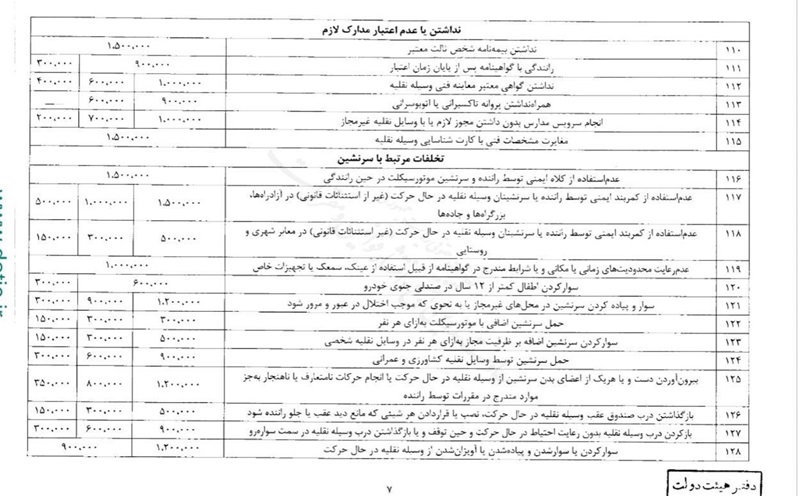 نداشتن یا عدم اعتبار مدارک لازم
۱۱۰ نداشتن بیمه‌نامه شخص ثالث معتبر ۱،۵۰۰،۰۰۰
۱۱۱ رانندگی با گواهینامه پس از پایان زمان اعتبار ۹۰۰،۰۰۰ ۳۰۰،۰۰۰
۱۱۲ نداشتن گواهی معتبر معاینه فنی وسیله نقلیه ۱،۰۰۰،۰۰۰ ۶۰۰،۰۰۰ ۴۰۰،۰۰۰
۱۱۳ همراه‌نداشتن پروانه تاکسیرانی یا اتوبوسرانی ۹۰۰،۰۰۰ ۶۰۰،۰۰۰
۱۱۴ انجام سرویس مدارس بدون داشتن مجوز لازم یا با وسایل نقلیه غیرمجاز ۱،۰۰۰،۰۰۰ ۷۰۰،۰۰۰ ۲۰۰،۰۰۰
۱۱۵ مغایرت مشخصات فنی با کارت شناسایی وسیله نقلیه ۱،۵۰۰،۰۰۰
تخلفات مرتبط با سرنشین
۱۱۶ عدم‌استفاده از کلاه ایمنی توسط راننده و سرنشین موتورسیکلت در حین رانندگی ۱،۵۰۰،۰۰۰
۱۱۷ عدم‌استفاده از کمربند ایمنی توسط راننده یا سرنشینان وسیله نقلیه در حال حرکت (غیر از استثنائات قانونی) در آزادراه‌ها، ۱،۵۰۰،۰۰۰ ۱،۰۰۰،۰۰۰ ۵۰۰،۰۰۰
بزرگراه‌ها و جاده‌ها
۱۱۸ عدم‌استفاده از کمربند ایمنی توسط راننده یا سرنشینان وسیله نقلیه در حال حرکت (غیر استثنائات قانونی) در معابر شهری و ۵۰۰،۰۰۰ ۳۰۰،۰۰۰ ۱۵۰،۰۰۰
روستایی
۱۱۹ عدم‌رعایت محدودیت‌های زمانی یا مکانی و یا شرایط مندرج در گواهینامه از قبیل استفاده از عینک، سمعک یا تجهیزات خاص ۱،۰۰۰،۰۰۰
۱۲۰ سوارکردن اطفال کمتر از ۱۲ سال در صندلی جلوی خودرو ۶۰۰،۰۰۰ ۳۰۰،۰۰۰
۱۲۱ سوار و پیاده کردن سرنشین در محل‌های غیرمجاز یا به نحوی که موجب اختلال در عبور و مرور شود ۱،۲۰۰،۰۰۰ ۹۰۰،۰۰۰ ۳۰۰،۰۰۰
۱۲۲ حمل سرنشین اضافی با موتورسیکلت به‌ازای هر نفر ۳۰۰،۰۰۰ ۳۰۰،۰۰۰ ۱۵۰،۰۰۰
۱۲۳ سوارکردن سرنشین اضافه بر ظرفیت مجاز به‌ازای هر نفر در وسایل نقلیه شخصی ۵۰۰،۰۰۰ ۳۰۰،۰۰۰ ۱۵۰،۰۰۰
۱۲۴ حمل سرنشین توسط وسایل نقلیه کشاورزی و عمرانی ۹۰۰،۰۰۰ ۶۰۰،۰۰۰ ۳۰۰،۰۰۰
۱۲۵ بیرون‌آوردن دست و یا هریک از اعضای بدن سرنشین از وسیله نقلیه در حال حرکت یا انجام حرکات نامتعارف یا ناهنجار به‌جز ۱،۲۰۰،۰۰۰ ۸۰۰،۰۰۰ ۳۵۰،۰۰۰
موارد مندرج در مقررات توسط راننده
۱۲۶ بازگذاشتن درب صندوق عقب وسیله نقلیه در حال حرکت، نصب یا قراردادن هر شیئی که مانع دید عقب یا جلو راننده شود ۵۰۰،۰۰۰ ۳۰۰،۰۰۰ ۱۵۰،۰۰۰
۱۲۷ بازکردن درب وسیله نقلیه بدون رعایت احتیاط در حال حرکت و حین توقف و یا بازگذاشتن درب وسیله نقلیه در سمت سواره‌رو ۹۰۰،۰۰۰ ۶۰۰،۰۰۰ ۳۰۰،۰۰۰
۱۲۸ سوارکردن یا سوارشدن و پیاده‌شدن یا آویزان‌شدن از وسیله نقلیه در حال حرکت ۱،۲۰۰،۰۰۰ ۹۰۰،۰۰۰
۷
دفتر هیئت دولت